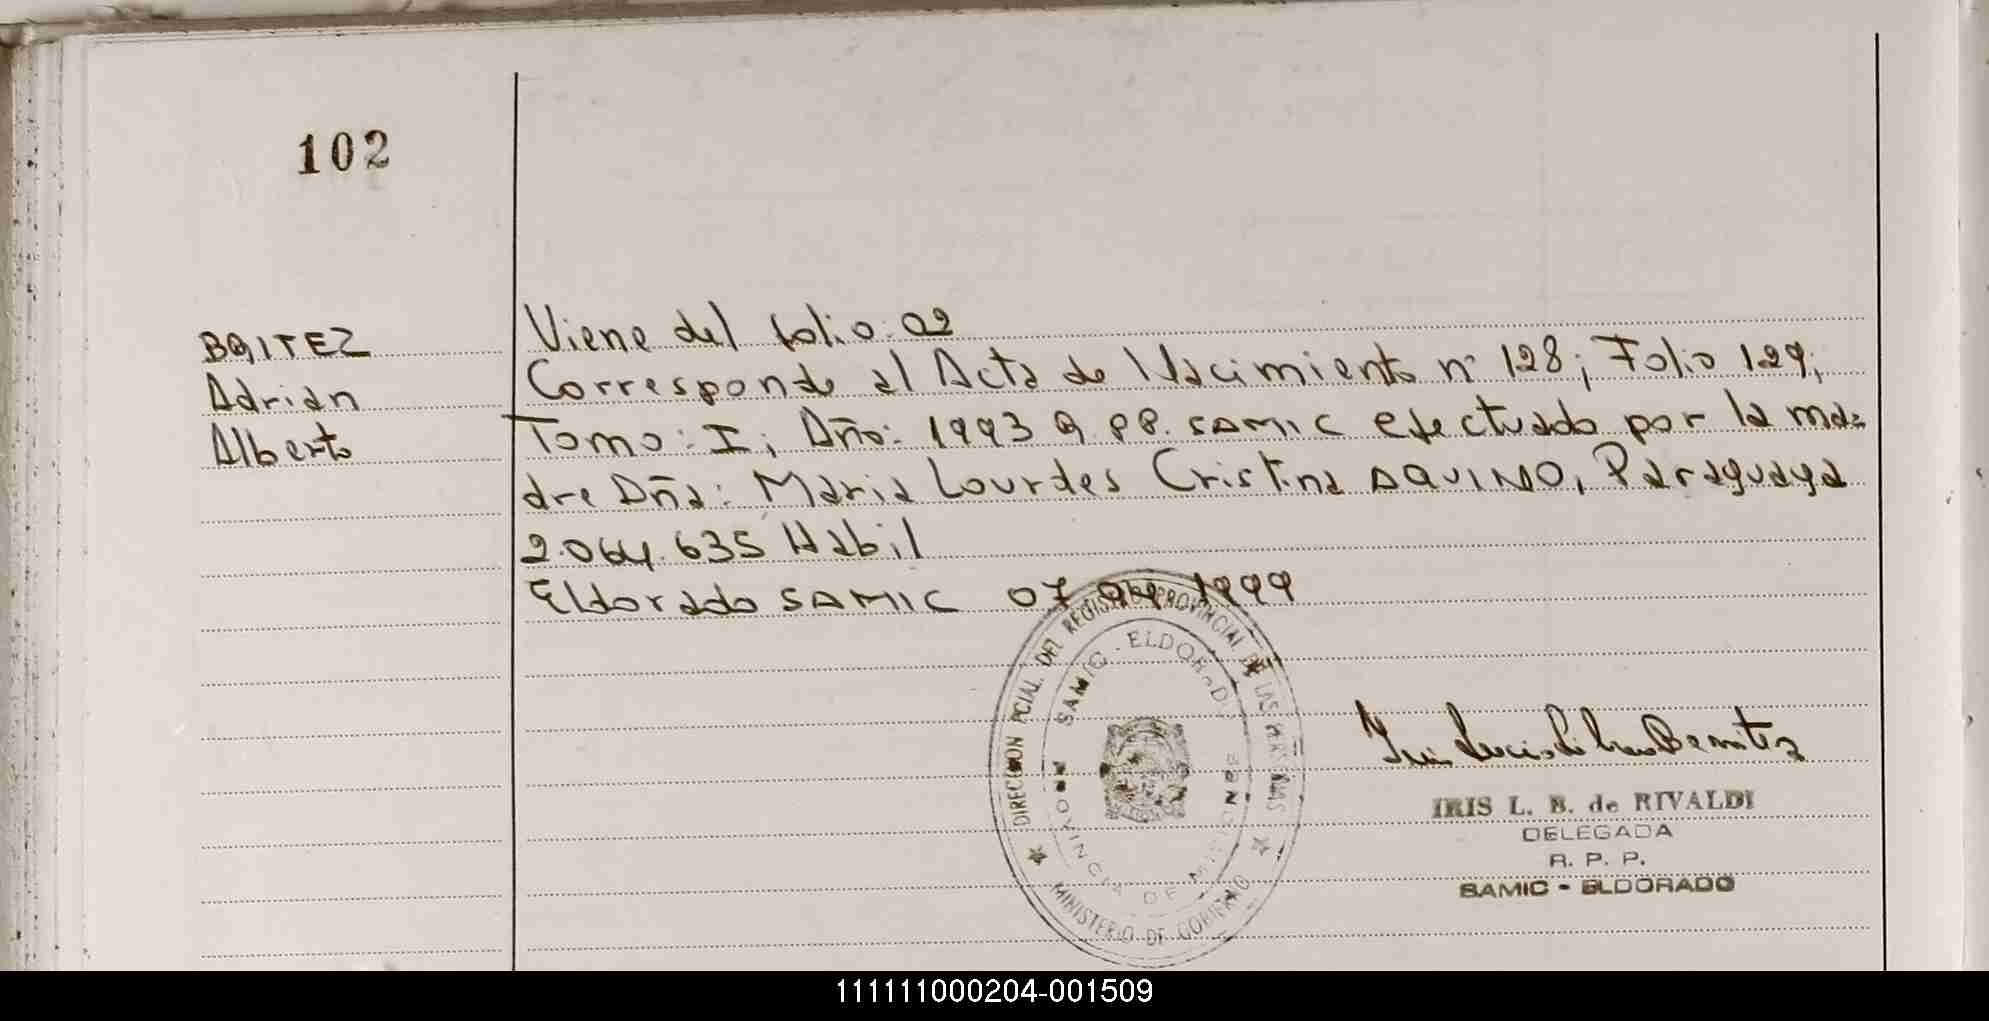 102
BAITEZ
Adrian
Alberto
Viene del folio: 02
Corresponde al Acta de Nacimiento n° 128; Folio 129;
Tomo: I; Año: 1993 SAMIC efectuado por la ma=
dre Dña: Maria Lourdes Cristina AQUINO, Paraguaya
2.064.635 Habil
Eldorado SAMIC 07 04 1999
DIRECCION PCIAL. DEL REGISTRO PROVINCIAL DE LAS PERSONAS
SAMIC - ELDORADO
PROVINCIA DE MISIONES
MINISTERIO DE GOBIERNO
Benitez
IRIS L. B. de RIVALDI
DELEGADA
R. P. P.
SAMIC - ELDORADO
111111000204-001509